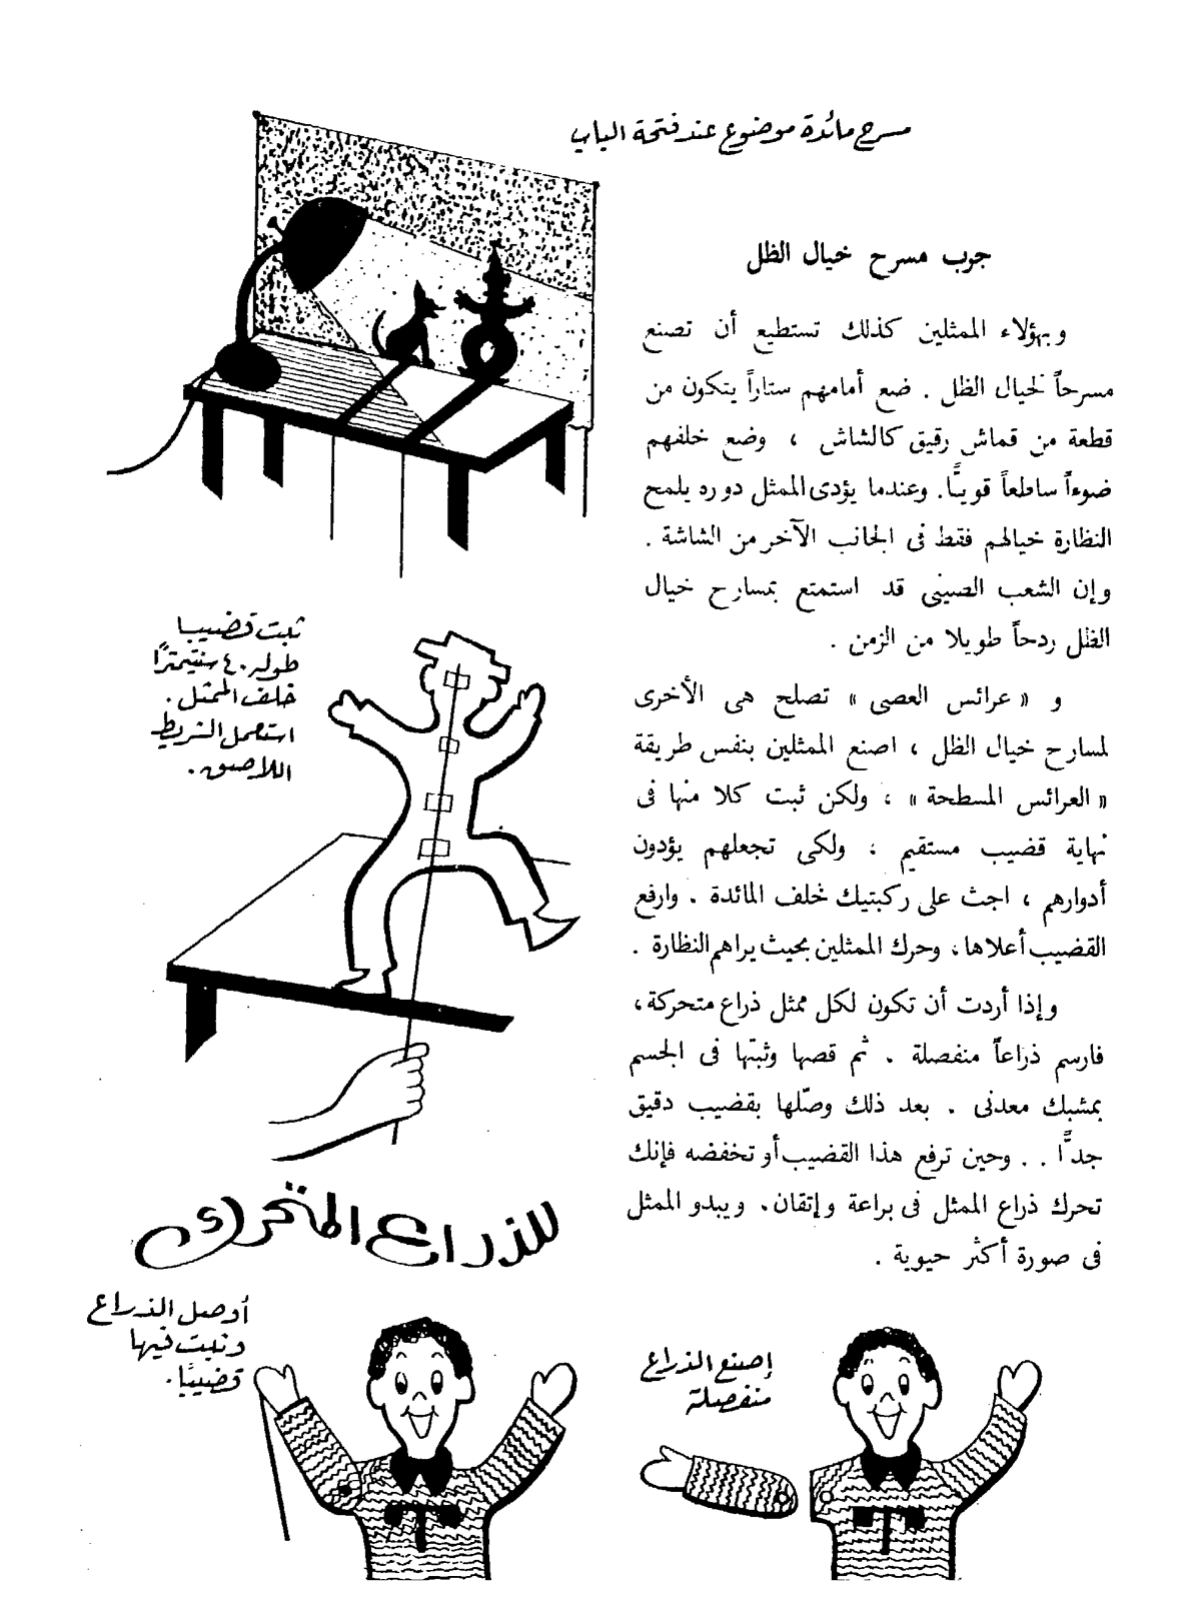 مسرح مائدة موضوع عند فتحة الباب
جرب مسرح خيال الظل
وبهؤلاء الممثلين كذلك تستطيع أن تصنع
مسرحاً لخيال الظل . ضع أمامهم ستاراً يتكون من
قطعة من قماش رقيق كالشاش ، وضع خلفهم
ضوءاً ساطعاً قويًّا. وعندما يؤدى الممثل دوره يلمح
النظارة خيالهم فقط فى الجانب الآخر من الشاشة .
وإن الشعب الصينى قد استمتع بمسارح خيال
الظل ردحاً طويلا من الزمن .
و « عرائس العصى » تصلح هى الأخرى
لمسارح خيال الظل ، اصنع الممثلين بنفس طريقة
« العرائس المسطحة » ، ولكن ثبت كلا منها فى
نهاية قضيب مستقيم ، ولكى تجعلهم يؤدون
أدوارهم ، اجث على ركبتيك خلف المائدة . وارفع
القضيب أعلاها، وحرك الممثلين بحيث يراهم النظارة .
وإذا أردت أن تكون لكل ممثل ذراع متحركة،
فارسم ذراعاً منفصلة . ثم قصها وثبتها فى الجسم
بمشبك معدنى . بعد ذلك وصّلها بقضيب دقيق
جدًّا . . وحين ترفع هذا القضيب أو تخفضه فإنك
تحرك ذراع الممثل فى براعة وإتقان. ويبدو الممثل
فى صورة أكثر حيوية .
ثبت قضيبا
طوله ٤٠ سنتيمترًا
خلف الممثل .
استعمل الشريط
اللاصق .
للذراع المتحرك
أوصل الذراع
وثبت فيها
قضيبًا .
إصنع الذراع
منفصلة